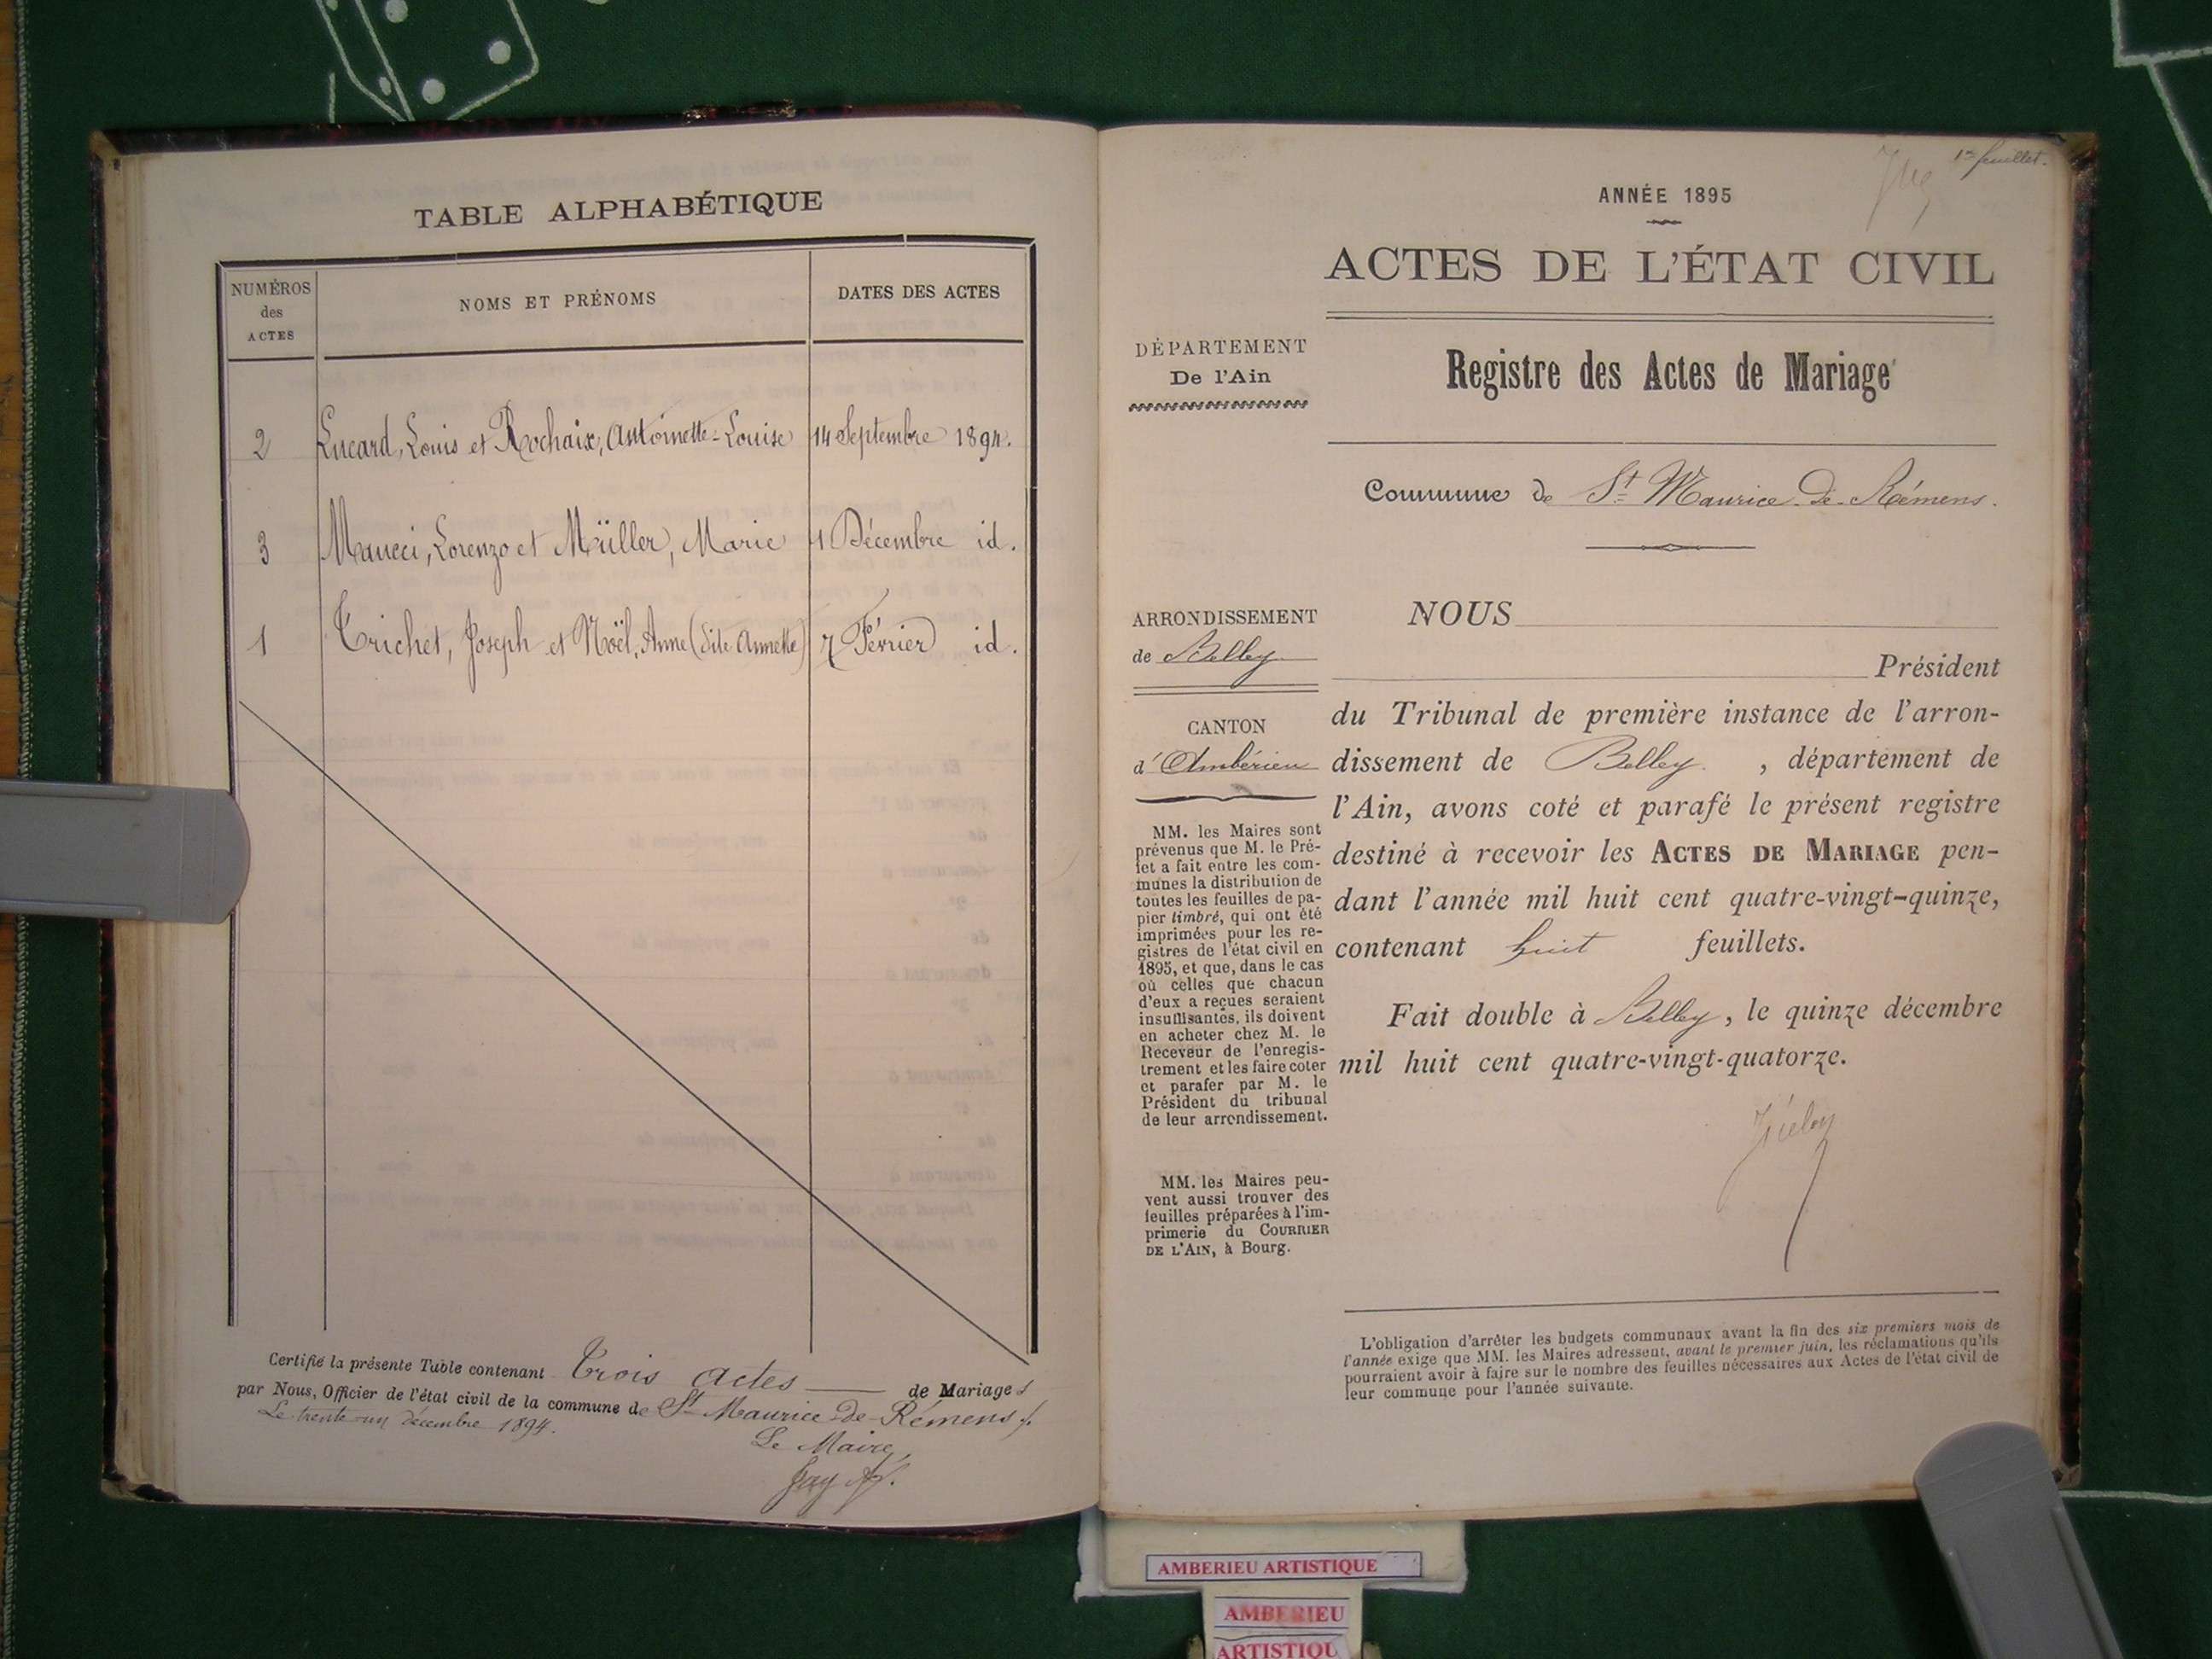 TABLE ALPHABÉTIQUE
NUMÉROS
des
ACTES
NOMS ET PRÉNOMS
DATES DES ACTES
2 Lucard, Louis et Rochaix, Antoinette-Louise 14 Septembre 1894.
3 Maucci, Lorenzo et Müller, Marie 1 Décembre id.
1 Trichet, Joseph et Noël, Anne (dite Annette) 7 Février id.
Certifié la présente Table contenant Trois actes de Mariages
par Nous, Officier de l'état civil de la commune de St Maurice-de-Rémens
Le trente-un décembre 1894.
Le Maire,
1er feuillet.
ANNÉE 1895
ACTES DE L'ÉTAT CIVIL
DÉPARTEMENT
De l'Ain
Registre des Actes de Mariage
Commune de St Maurice-de-Rémens.
ARRONDISSEMENT
de Belley
CANTON
d'Ambérieu
MM. les Maires sont
prévenus que M. le Pré-
fet a fait entre les com-
munes la distribution de
toutes les feuilles de pa-
pier timbré, qui ont été
imprimées pour les re-
gistres de l'état civil en
1895, et que, dans le cas
où celles que chacun
d'eux a reçues seraient
insuffisantes, ils doivent
en acheter chez M. le
Receveur de l'enregis-
trement et les faire coter
et parafer par M. le
Président du tribunal
de leur arrondissement.
MM. les Maires peu-
vent aussi trouver des
feuilles préparées à l'im-
primerie du COURRIER
DE L'AIN, à Bourg.
NOUS
Président
du Tribunal de première instance de l'arron-
dissement de Belley, département de
l'Ain, avons coté et parafé le présent registre
destiné à recevoir les ACTES DE MARIAGE pen-
dant l'année mil huit cent quatre-vingt-quinze,
contenant huit feuillets.
Fait double à Belley, le quinze décembre
mil huit cent quatre-vingt-quatorze.
L'obligation d'arrêter les budgets communaux avant la fin des six premiers mois de
l'année exige que MM. les Maires adressent, avant le premier juin, les réclamations qu'ils
pourraient avoir à faire sur le nombre des feuilles nécessaires aux Actes de l'état civil de
leur commune pour l'année suivante.
AMBERIEU ARTISTIQUE
AMBERIEU
ARTISTIQU